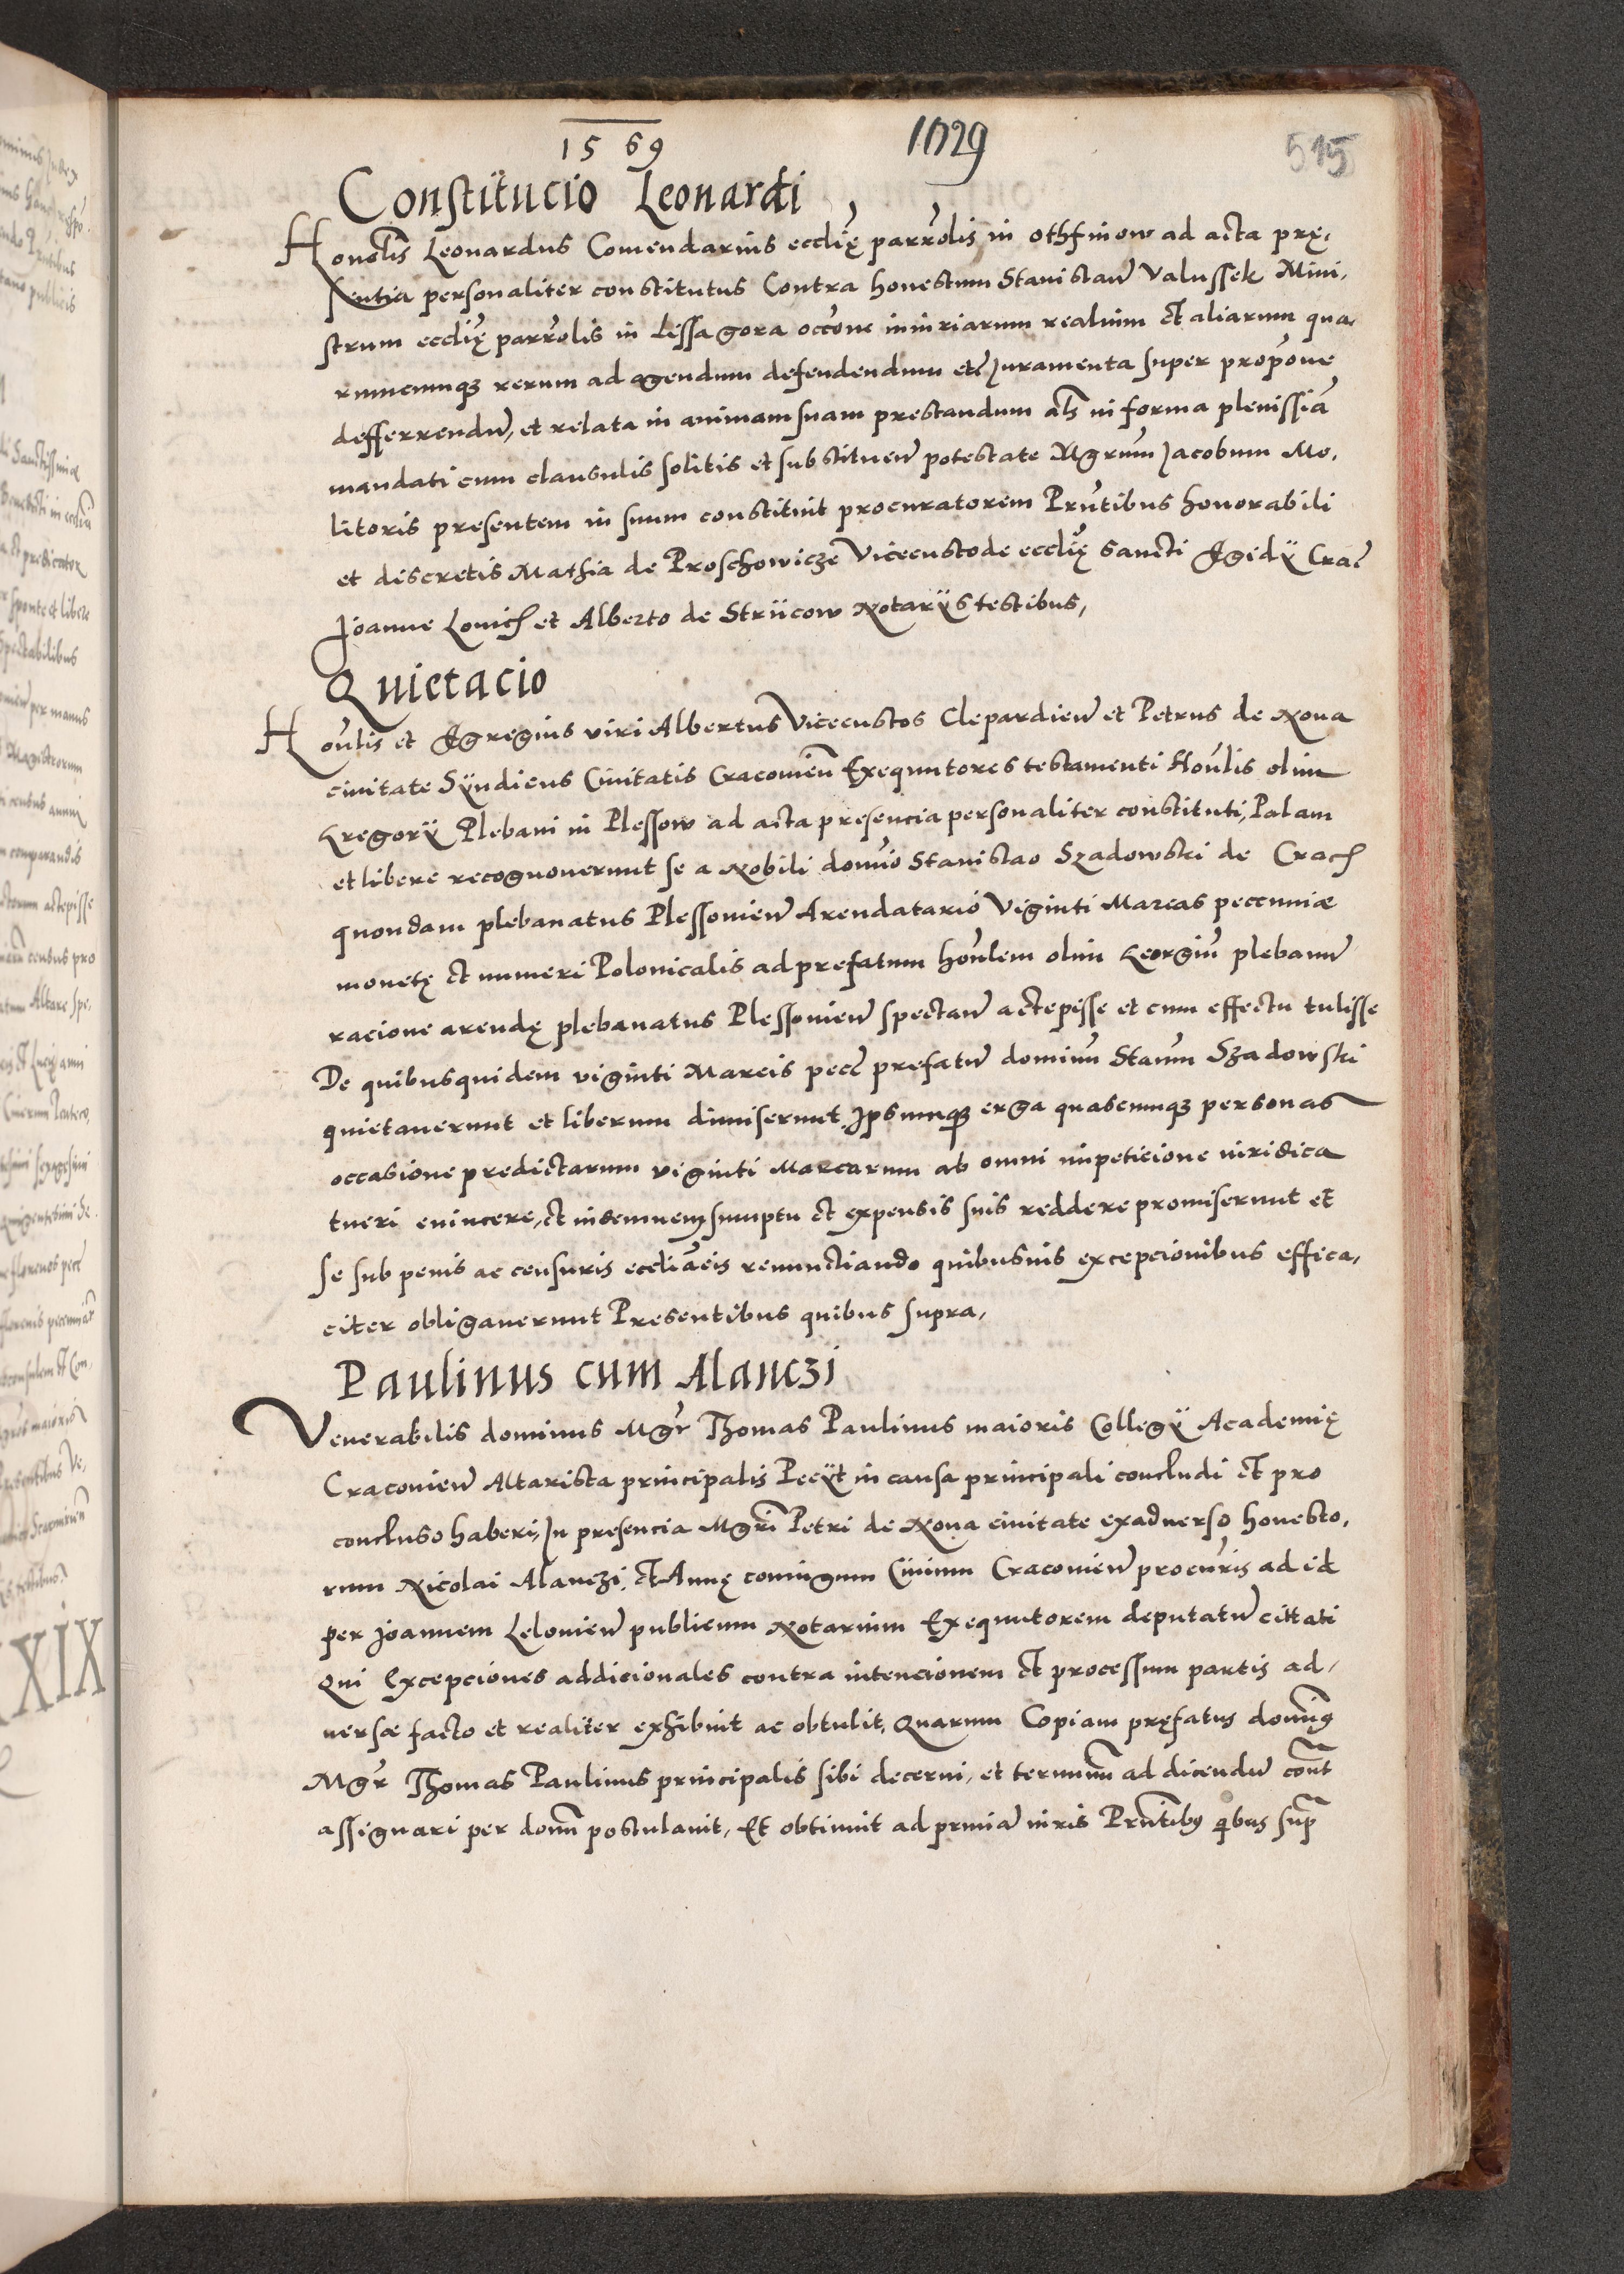 1569
1029
515
Constitucio Leonardi
Honolis Leonardus Comendarius ecclię parrolis in othfinow ad acta pręsentia personaliter constitutus Contra honestum Stanislaum Valussek Mini,
strum ecclię parrolis in Lissagora occone iniuriarum realium et aliarum qua,
rumcunq3 rerum ad agendum defendendum etc Juramenta super propone
defferrendum, et relata in animam suam prestandum als in forma plenissia
mandati cum clausulis solitis et substituen potestate Mgrum Jacobum Mo,
litoris presentem in suum constituit procuratorem Prntibus honorabili
et discretis Mathia de Proschowicze Vicecustode ecclię sancti Egidÿ Crac
Joanne Lovich et Alberto de Striicow Notarÿs testibus,
Quietacio
Honlis et Egregius viri Albertus Vicecustos Clepardien et Petrus de Nova
civitate Sÿndicus Civitatis Cracovien Exequutores testamenti Honlis olim
Gregorÿ Plebani in Plessow ad acta presencia personaliter constituti, Palam
et libere recognoverunt se a Nobili domino Stanislao Szadowski de Crach
quondam plebanatus Plessovien Arendatario Viginti Marcas peccuniæ
monetę et numeri Polonicalis ad prefatum honlem olim Georgium plebanum
racione arendę plebanatus Plessovien spectan acccepisse et cum effectu tulisse
De quibusquidem viginti Marcis pecc prefatum dominum Stanm Szadowski
quietaverunt et liberum dimiserunt, Ipsumq3 erga quascumq3 personas
occasione predictarum viginti Marcarum ab omni impeticione iuridica
tueri evincere, et indemnem sumptu et expensis suis reddere promiserunt et
se sub penis ac censuris eccliacis renunctiando quibusvis excepcionibus effica,
citer obligaverunt Presentibus quibus supra,
Paulinus cum Alanczi
Venerabilis dominus Mgr Thomas Paulinus maioris Collegÿ Academię
Cracovien Altarista principalis Peciit in causa principali concludi et pro
concluso haberi, In presencia Mgri Petri de Nova civitate exadverso honesto,
rum Nicolai Alanczi, et Annę coniugum Civium Cracovien procuris ad id
per Joannem Lelovien publicum Notarium Exequutorem deputatum cittati
Qui Excepciones addicionales contra intencionem et processum partis ad,
versæ facto et realiter exhibuit ac obtulit, Quarum Copiam pręfatus dominus
Mgr Thomas Paulinus principalis sibi decerni, et terminum ad dicendum cont
assignari per donm postulavit, Et obtinuit ad primam iuris Prntibus qibus supra